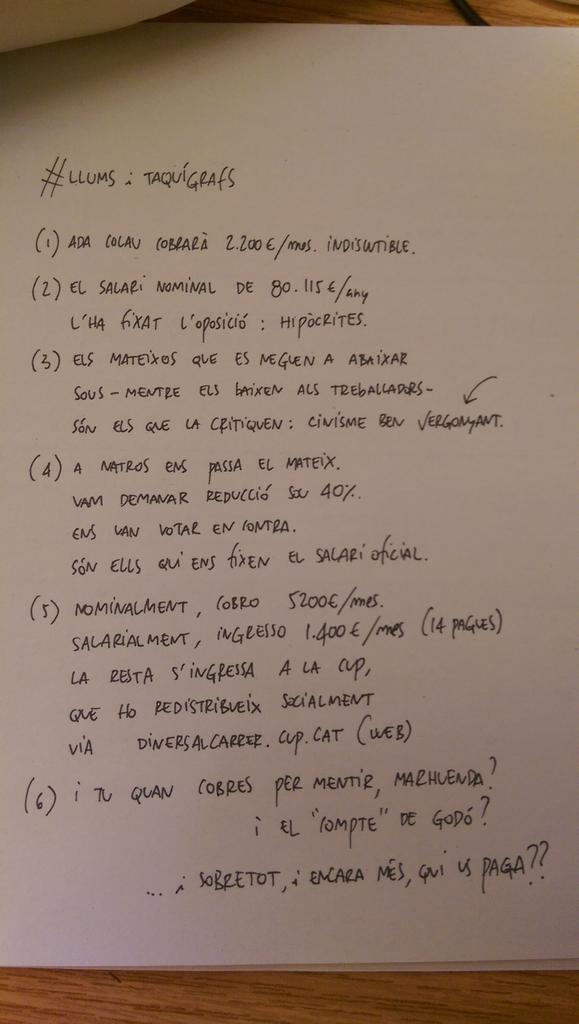 #LLUMS i TAQUÍGRAFS
(1) ADA COLAU COBRARÀ 2.200€/mes. INDISCUTIBLE.
(2) EL SALARI NOMINAL DE 80.115€/any
L'HA FIXAT L'OPOSICIÓ: HIPÒCRITES.
(3) ELS MATEIXOS QUE ES NEGUEN A ABAIXAR
SOUS - MENTRE ELS BAIXEN ALS TREBALLADORS -
SÓN ELS QUE LA CRITIQUEN: CINISME BEN VERGONYANT.
(4) A NATROS ENS PASSA EL MATEIX.
VAM DEMANAR REDUCCIÓ SOU 40%.
ENS VAN VOTAR EN CONTRA.
SÓN ELLS QUI ENS FIXEN EL SALARI OFICIAL.
(5) NOMINALMENT, COBRO 5200€/mes.
SALARIALMENT, INGRESSO 1.400€/mes (14 PAGUES)
LA RESTA S'INGRESSA A LA CUP,
QUE HO REDISTRIBUEIX SOCIALMENT
VIA DINERSALCARRER.CUP.CAT (WEB)
(6) i TU QUAN COBRES PER MENTIR, MARHUENDA?
i EL "COMPTE" DE GODÓ?
... i SOBRETOT, i ENCARA MÉS, QUI US PAGA??